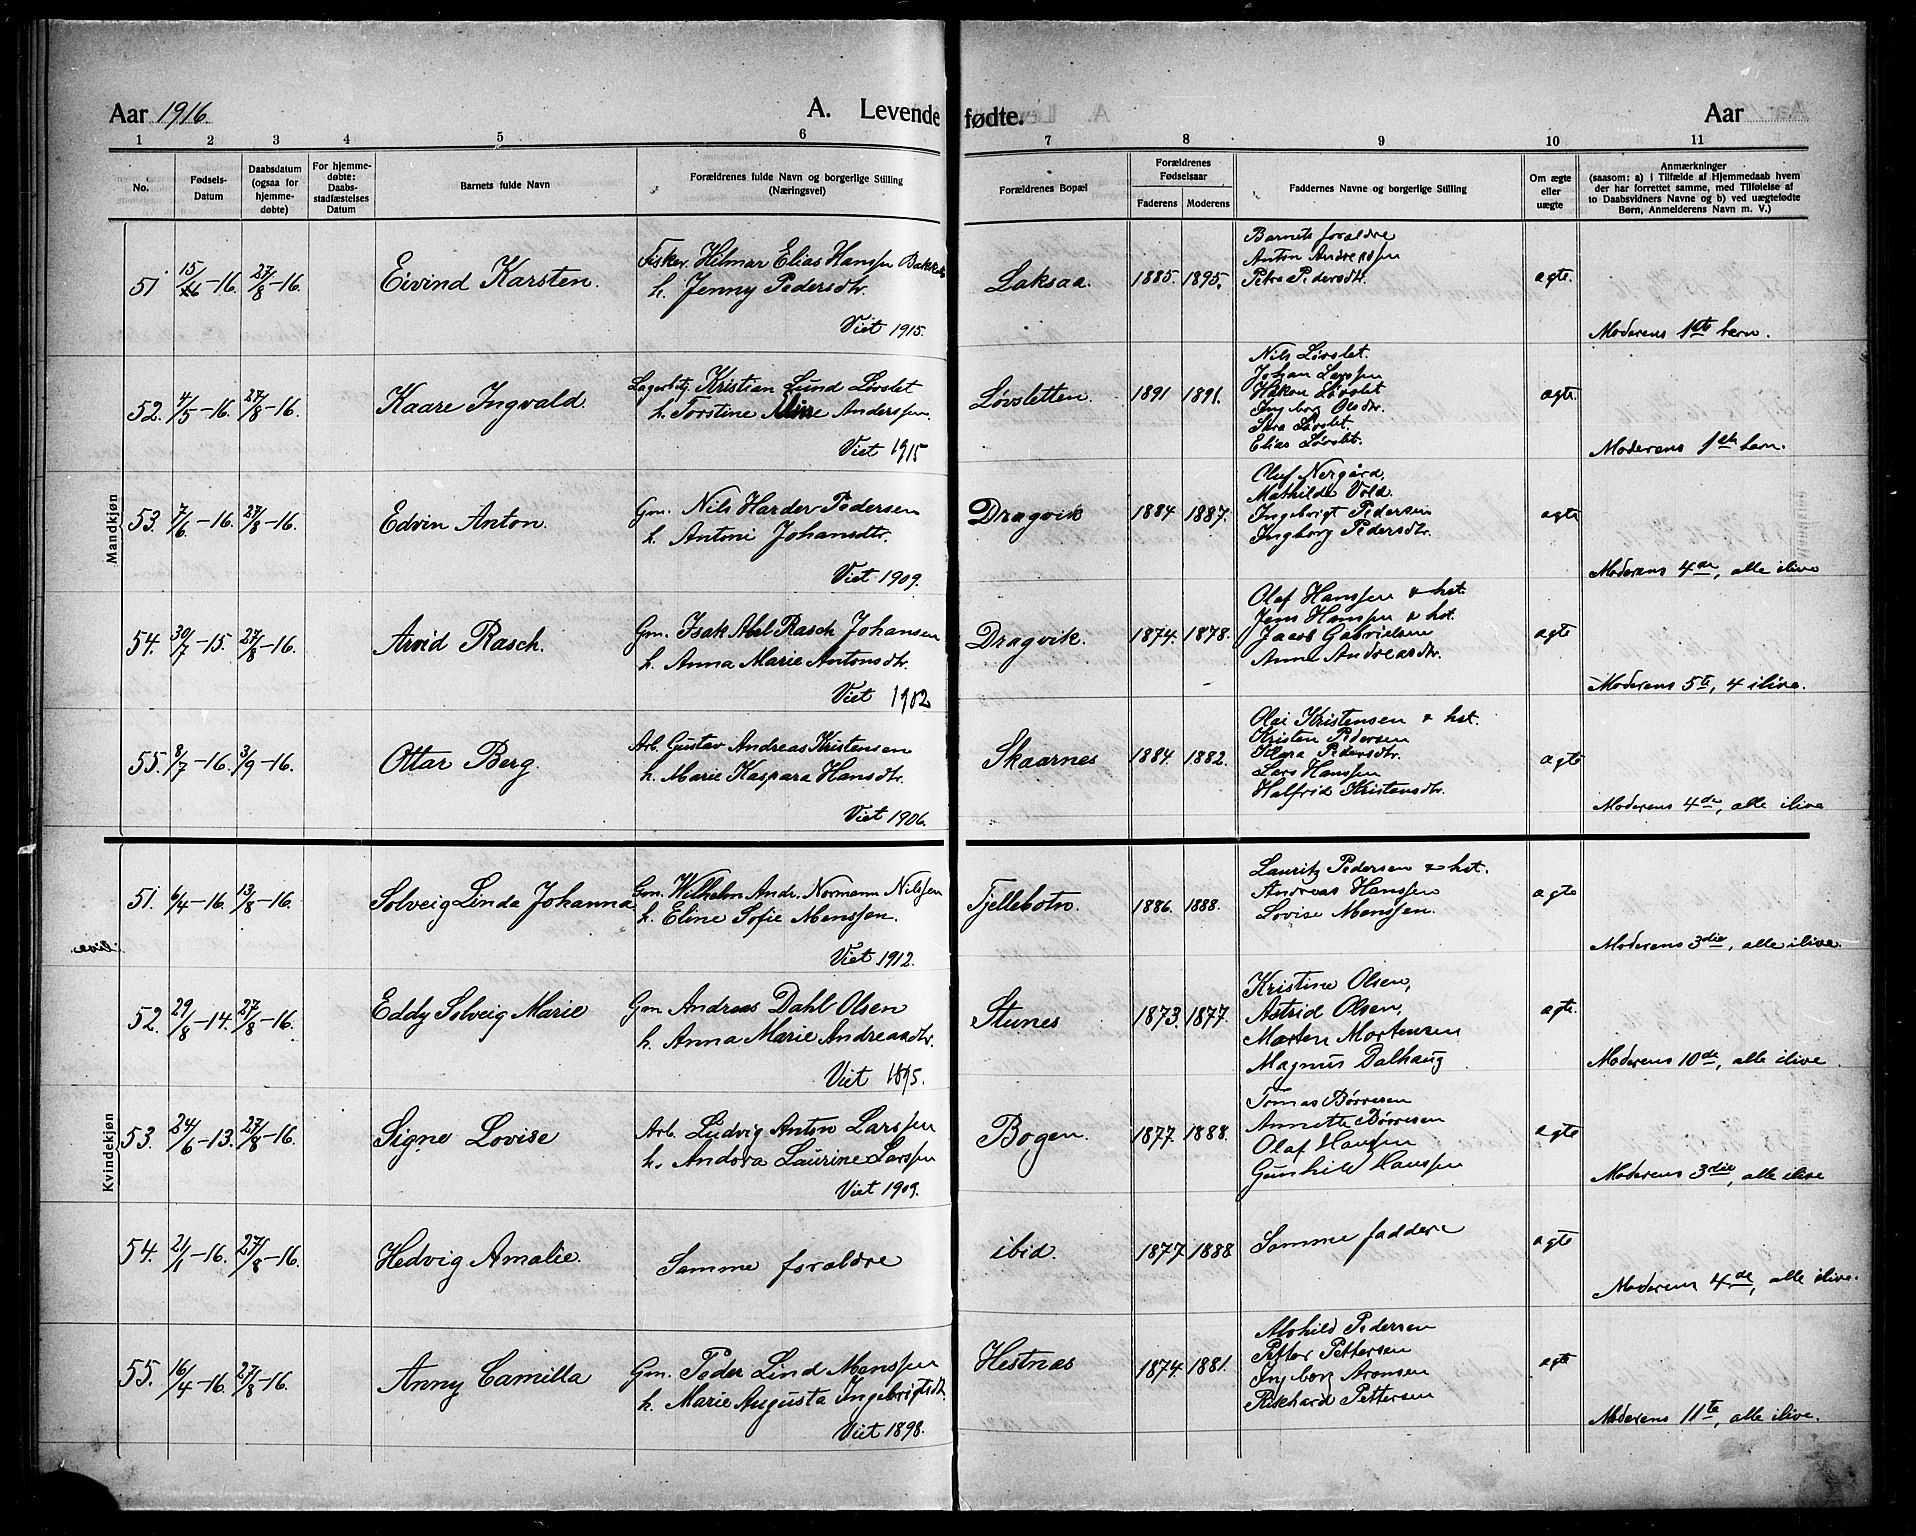 Aar 1916.
A. Levende fødte.
Aar
1 2 3 4 5 6 7 8 9 10 11
No.
Fødsels-Datum
Daabsdatum (ogsaa for hjemme-døbte)
For hjemme-døbte: Daabs-stadfæstelses Datum
Barnets fulde Navn
Forældrenes fulde Navn og borgerlige Stilling (Næringsvei)
Forældrenes Bopæl
Forældrenes Fødselsaar
Faderens Moderens
Faddernes Navne og borgerlige Stilling
Om ægte eller uægte
Anmærkninger (saasom: a) i Tilfælde af Hjemmedaab hvem der har forrettet samme, med Tilføielse af to Daabsvidners Navne og b) ved uægtefødte Børn, Anmelderens Navn m. V.)
Mandkjøn
51 15/ -16. 27/8-16 Eivind Karsten.
Fisker. Hilmar Elias Hanssen
h. Jenny Pedersdtr.
Viet 1915.
Laksaa. 1885. 1895.
Barnets forældre
Anton Andreassen
Petra Pedersdtr.
ægte.
Moderens 1ste barn.
52. 4/5-16. 27/8-16. Kaare Ingvald.
Kristian Lund Løvslet
h. Torstine Aline Anderssen.
Viet 1915
Løvsletten. 1891 1891.
Nils Løvslet.
Johan Larssen
Håkon Løvslet
Ingeborg Olsdtr.
Sara Løvslet.
Elias Løvslet.
ægte.
Moderens 1ste barn.
53. 7/6-16. 27/8-16. Edvin Anton.
Gm. Nils Harder Pedersen
h. Antoni Johansdtr.
Viet 1909.
Dragvik 1884 1887.
Oluf Nergård,
Mathilde Vold.
Ingebrigt Pedersen
Ingborg Pedersdtr.
ægte
Moderens 4de, alle ilive
54. 30/7-15. 27/8-16. Arvid Rasch.
Gm. Isak Abel Rasch Johansen
h. Anna Marie Antonsdtr.
Viet 1902
Dragvik. 1874. 1878.
Olaf Hanssen & hst.
Jens Hanssen & hst.
Jacob Gabrielsen
Anne Andreasdtr.
ægte
Moderens 5te, 4 ilive.
55. 8/7-16. 3/9-16. Ottar Berg.
Arb. Gustav Andreas Kristensen
h. Marie Kaspara Hansdtr.
Viet 1906.
Skaarnes 1884. 1882.
Olai Kristensen & hst.
Kristen Pedersen
Klara Pedersdtr.
Lars Hanssen
Halfrid Kristensdtr.
ægte
Moderens 4de, alle ilive
Kvindekjøn
51. 6/4-16. 13/8-16. Solveig Linda Johanna
Gm. Wilhelm Andr. Normann Nilssen
h. Eline Sofie Monssen.
Viet 1912.
Fjellebotn. 1886. 1888.
Lauritz Pedersen & hst.
Andreas Hanssen
Lovise Monssen.
ægte
Moderens 3die, alle ilive.
ilive.
52. 29/8-14. 27/8-16. Eddy Solveig Marie
Gm Andreas Dahl Olsen
h. Anna Marie Andreasdtr.
Viet 1895.
Stunes 1873. 1877.
Kristine Olsen,
Astrid Olsen,
Morten Mortensen
Magnus Dalhaug
ægte.
Moderens 10de, alle ilive.
53. 24/6-13. 27/8-16. Signe Lovise
Arb. Ludvig Anton Larssen
h. Andora Laurine Larssen
Viet 1909.
Bogen. 1877. 1888.
Tomas Børresen
Annette Børresen
Olaf Hanssen
Gunhild Hanssen
ægte
Moderens 3die, alle ilive
54. 21/1-16. 27/8-16. Hedvig Amalie.
Samme forældre
ibid. 1877 1888
Samme faddere
ægte
Moderens 4de, alle ilive.
55. 16/4-16. 27/8-16. Anny Camilla
Gm. Peder Lind Monssen
h. Marie Augusta Ingebrigtsdtr.
Viet 1898.
Hestnæs 1874. 1881.
Alvhild Pedersen
Petter Pettersen
Ingeborg Aronsen
Rikhard Pettersen
ægte
Moderens 11te, alle ilive.